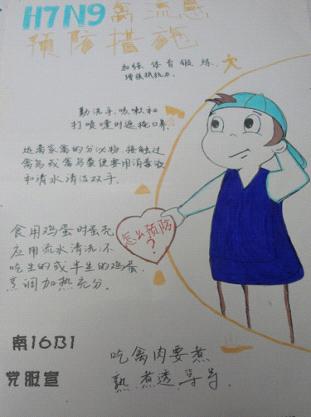 H7N9禽流感
预防措施
加强体育锻炼，
增强抵抗力。
勤洗手，咳嗽和
打喷嚏时遮掩口鼻。
远离家禽的分泌物，接触过
禽鸟或禽鸟粪便要用消毒液
和清水清洁双手。
食用鸡蛋时蛋壳
应用流水清洗，不
吃生的或半生的鸡蛋，
烹调加热充分。
怎么预防
?
南16B1
党服宣
吃禽肉要煮
熟、煮透等等。